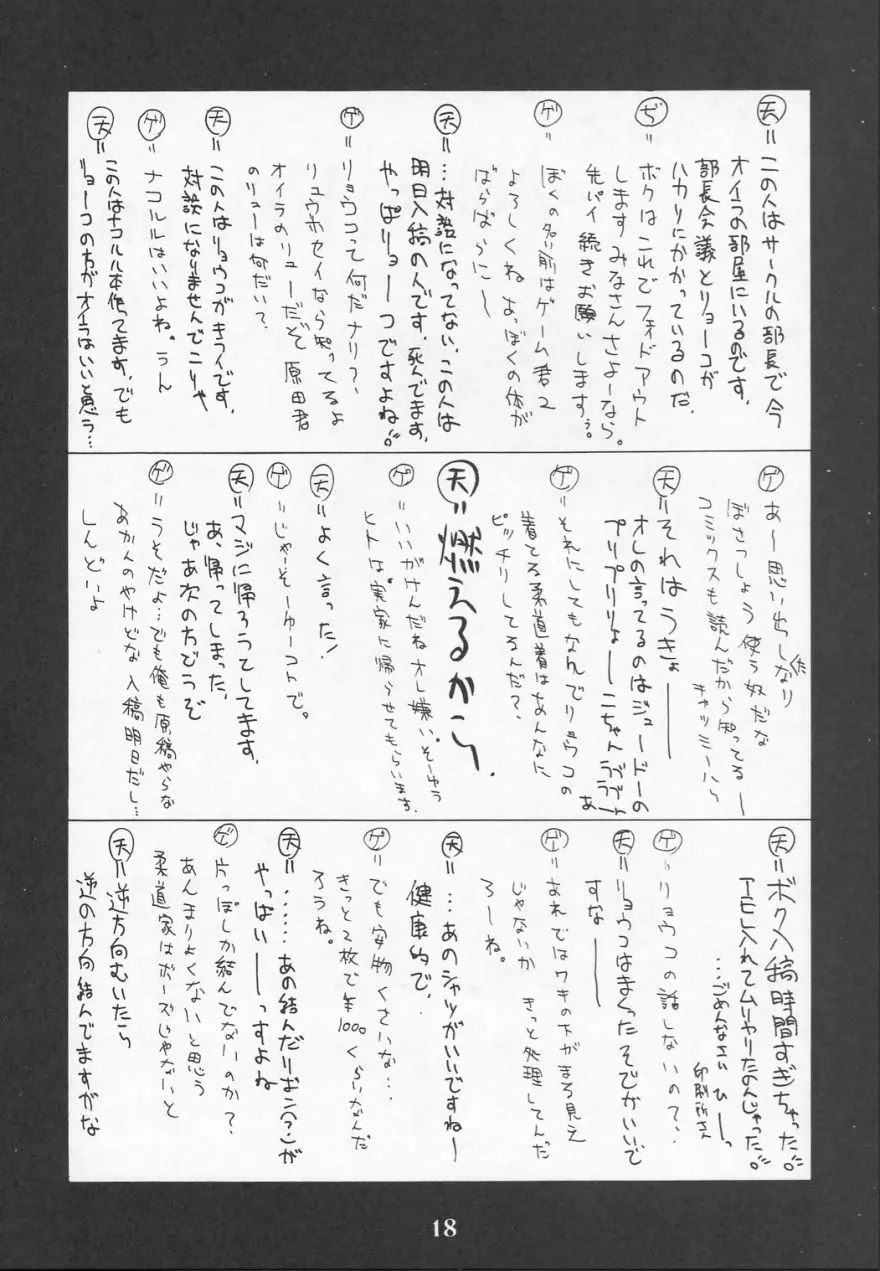 天=この人はサークルの部長で今
オイラの部屋にいるのです。
部長会議とリョーコが
ハカリにかかっているのだ。
ぢ=ボクはこれでフェイドアウト
します みなさんさよーなら。
先パイ続きお願いします。
ゲ=ぼくの名前はゲーム君2
よろしくね あっぼくの体が
ばらばらに〜
天=…対談になってない、この人は
明日入稿の人です。死んでます。
やっぱリョーコですよね。
ゲ=リョウコって何だナリ?、
リュウホセイなら知ってるよ
オイラのリューだぞで 原田君
のリューは何だい?
天=この人はリョウコがキライです。
対談になりませんでこりゃ
ゲ=ナコルルはいいよね。うん
天=この人はナコルル本作ってます。でも
リョーコの方がオイラはいいと思う…
ゲ=あー思い出しなり
ぼさつしょう 使う奴だな
コミックスも読んだから知ってるー
キャッミーハら
天=それはうきょ―――
オレの言ってるのはジュードーの
プリプリりょーこちゃんラブラブ
ゲ=それにしてもなんでリョウコの
着てる柔道着はあんなに
ピッチリしてるんだ?、
天=燃えるから。
ゲ=いいがけんだねオレ嫌い。そーゆう
ヒトは。実家に帰らせてもらいます。
天=よく言った!
ゲ=じゃーそーゆーコトで。
天=マジに帰ろうてしてます。
あ、帰ってしまった、
じゃあ次の方どうぞ
ゲ=うそだよ…でも俺も原稿やらな
あかんのやけどな 入稿明日だし…
しんどいよ
天=ボク入稿時間すぎちゃった。
アモレ入れてムリヤリたのんじゃった。
…ごめんなさい ひ――っ
印刷所さん
ゲ=リョウコの話しないので、、
天=リョウコはまくったそでがいいで
すな――
ゲ=あれではワキの下がまる見え
じゃないか きっと処理してんだ
ろーね。
天=…あのシャツがいいですね〜
健康的で、
ゲ=でも安物くさいな…
きっと2枚で¥1000くらいなんだ
ろうね。
天=……あの結んだりぼん(?)が
やっぱい――っすよね
ゲ=片っぽしか結んでないのか?、
あんまりよくないと思う
柔道家はポーズじゃないと
天=逆方向むいたら
逆の方向結んでますがな
18